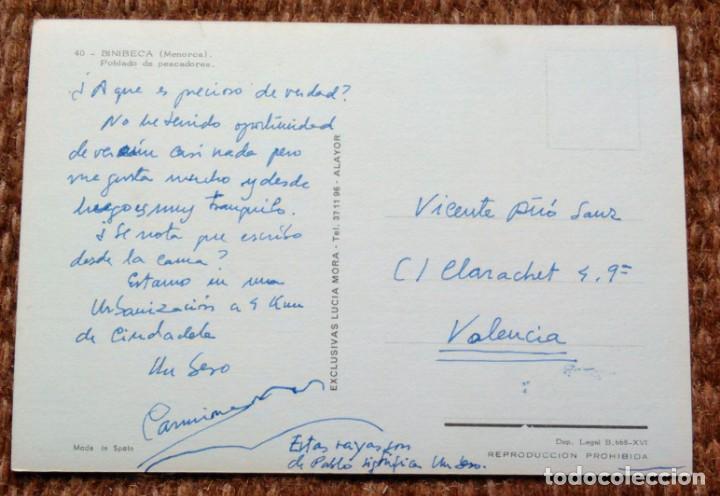 40 - BINIBECA (Menorca).
Poblado de pescadores.
¿A que es precioso de verdad?
No he tenido oportunidad
de ver aún casi nada pero
me gusta mucho y desde
luego es muy tranquilo.
¿Se nota que escribo
desde la cama?
Estamo in una
Urbanización a 4 Km
de Ciudadela
Un beso
EXCLUSIVAS LUCIA MORA - Tel. 37 11 96 - ALAYOR
Vicente Sanz
C/ Clarachet 4, 9ª
Valencia
Estas rayas son
de Pablo significa Un beso.
Made in Spain
Dep. Legal B. 668-XVI
REPRODUCCION PROHIBIDA
todocoleccion